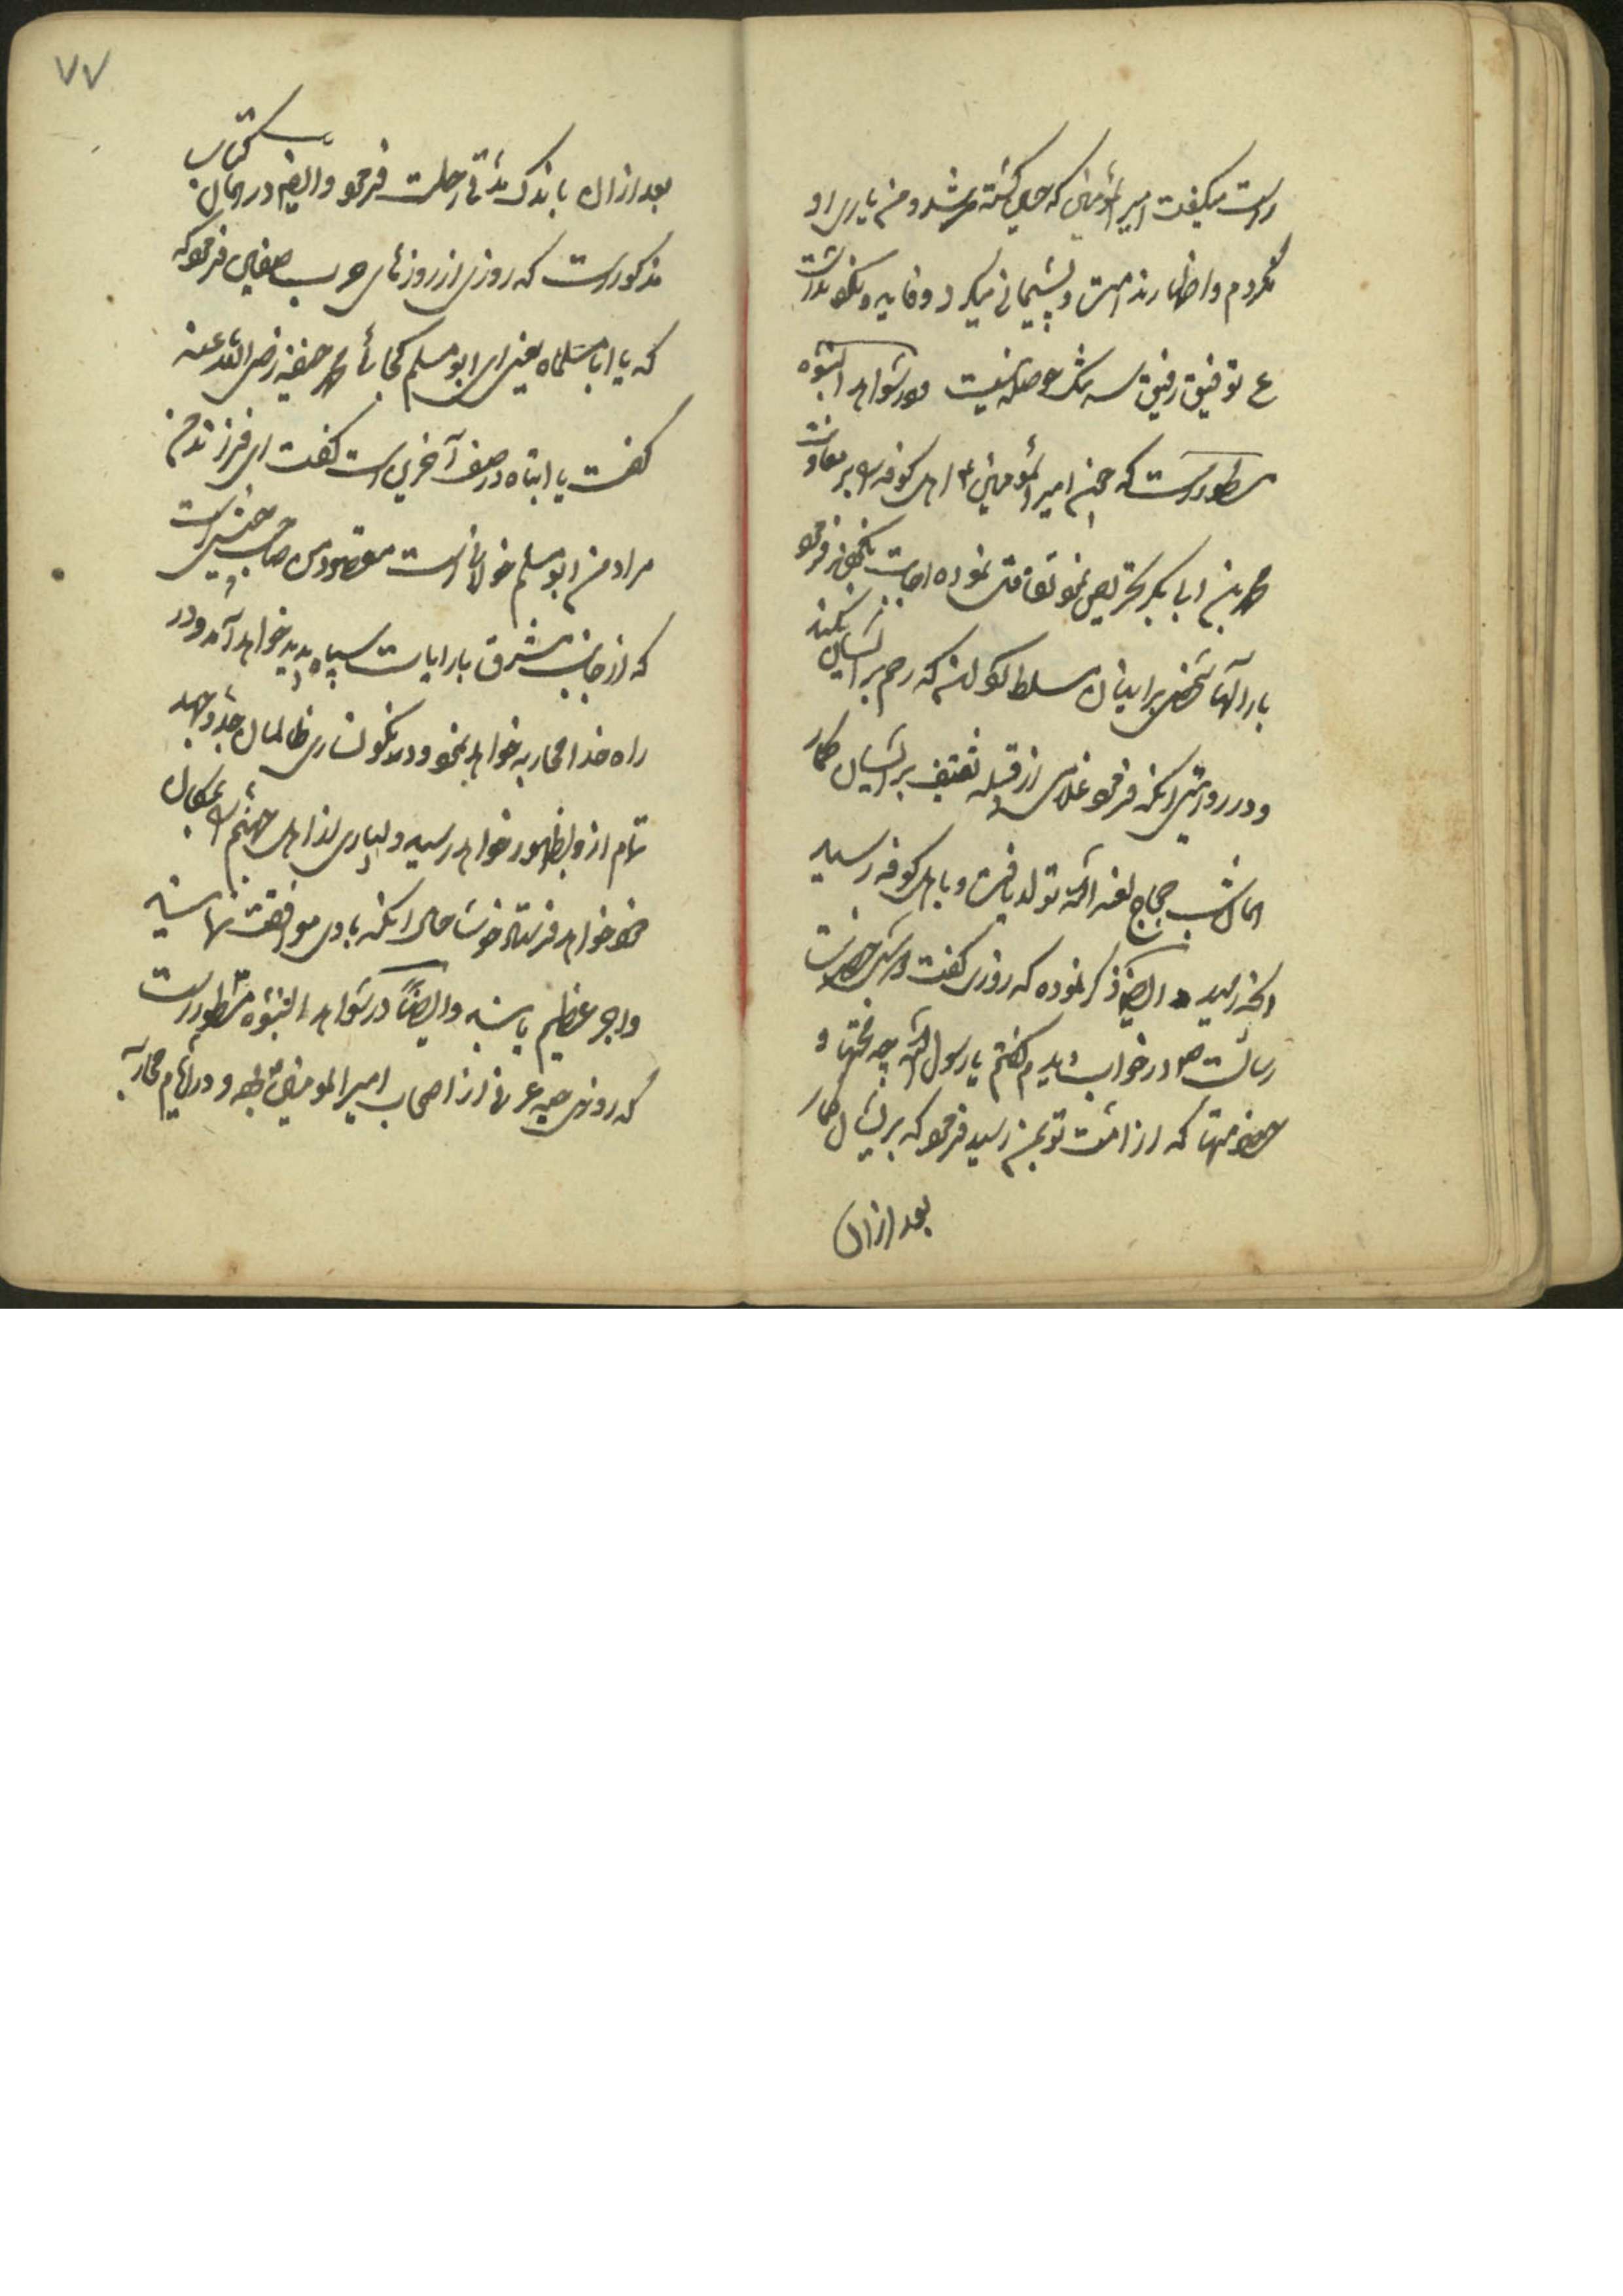 راست میگفت امیر المؤمنین که حسین کشته شد و من یاری او
نکردم و اظهار ندامت و پشیمانی میکرد و فایده نداشت
ع توفیق رفیقیست بهر کس ندهند در شواهد النبوه
مسطورست که چون امیر المؤمنین اهل کوفه را بر معاونت
محمد بن ابا بکر تحریص نمود تقاعد نموده اجابت نکردند فرمود
بار الها شخصی بر ایشان مسلط کردان که رحم بر ایشان نکند
و در روایتی آنکه فرمود غلامی از قبیله ثقیف بر ایشان کمار
همان شب حجاج لعنه الله تولد یافت و باهل کوفه رسید
آنچه رسید ایضا ذکر نموده که روزی گفت امشب حضرت
رسالت را در خواب دیدم گفتم یا رسول الله چه محنتها و
خصومتها که از امت تو بمن رسید فرمود که بر ایشان
بعد ازان
۷۷
بعد ازان باندک مدتی رحلت فرمود و ایضا در همان کتاب
مذکورست که روزی از روزهای حرب صفین فرمود که
که یا ابا مسلماه یعنی ای ابو مسلم کجائی محمد حنفیه رضی الله عنه
گفت یا ابتاه در صف آخرین است گفت ای فرزند من
مراد من ابو مسلم خولانی نیست مقصود من صاحب جیشی است
که از جانب مشرق با رایات سیاه پدید خواهد آمد و در
راه خدا محاربه خواهد نمود و در نگونساری ظالمان جد و جهد
تمام از و بظهور خواهد رسید و بسیاری از اهل جهنم را بمکان
خود خواهد فرستاد خوشا حال آنکه با وی موافقت نماید
و اجر عظیم یابد و ایضاً در شواهد النبوه مسطورست
که روزی حبه عرنی از اصحاب امیر المومنین بود و در ایام محاربه